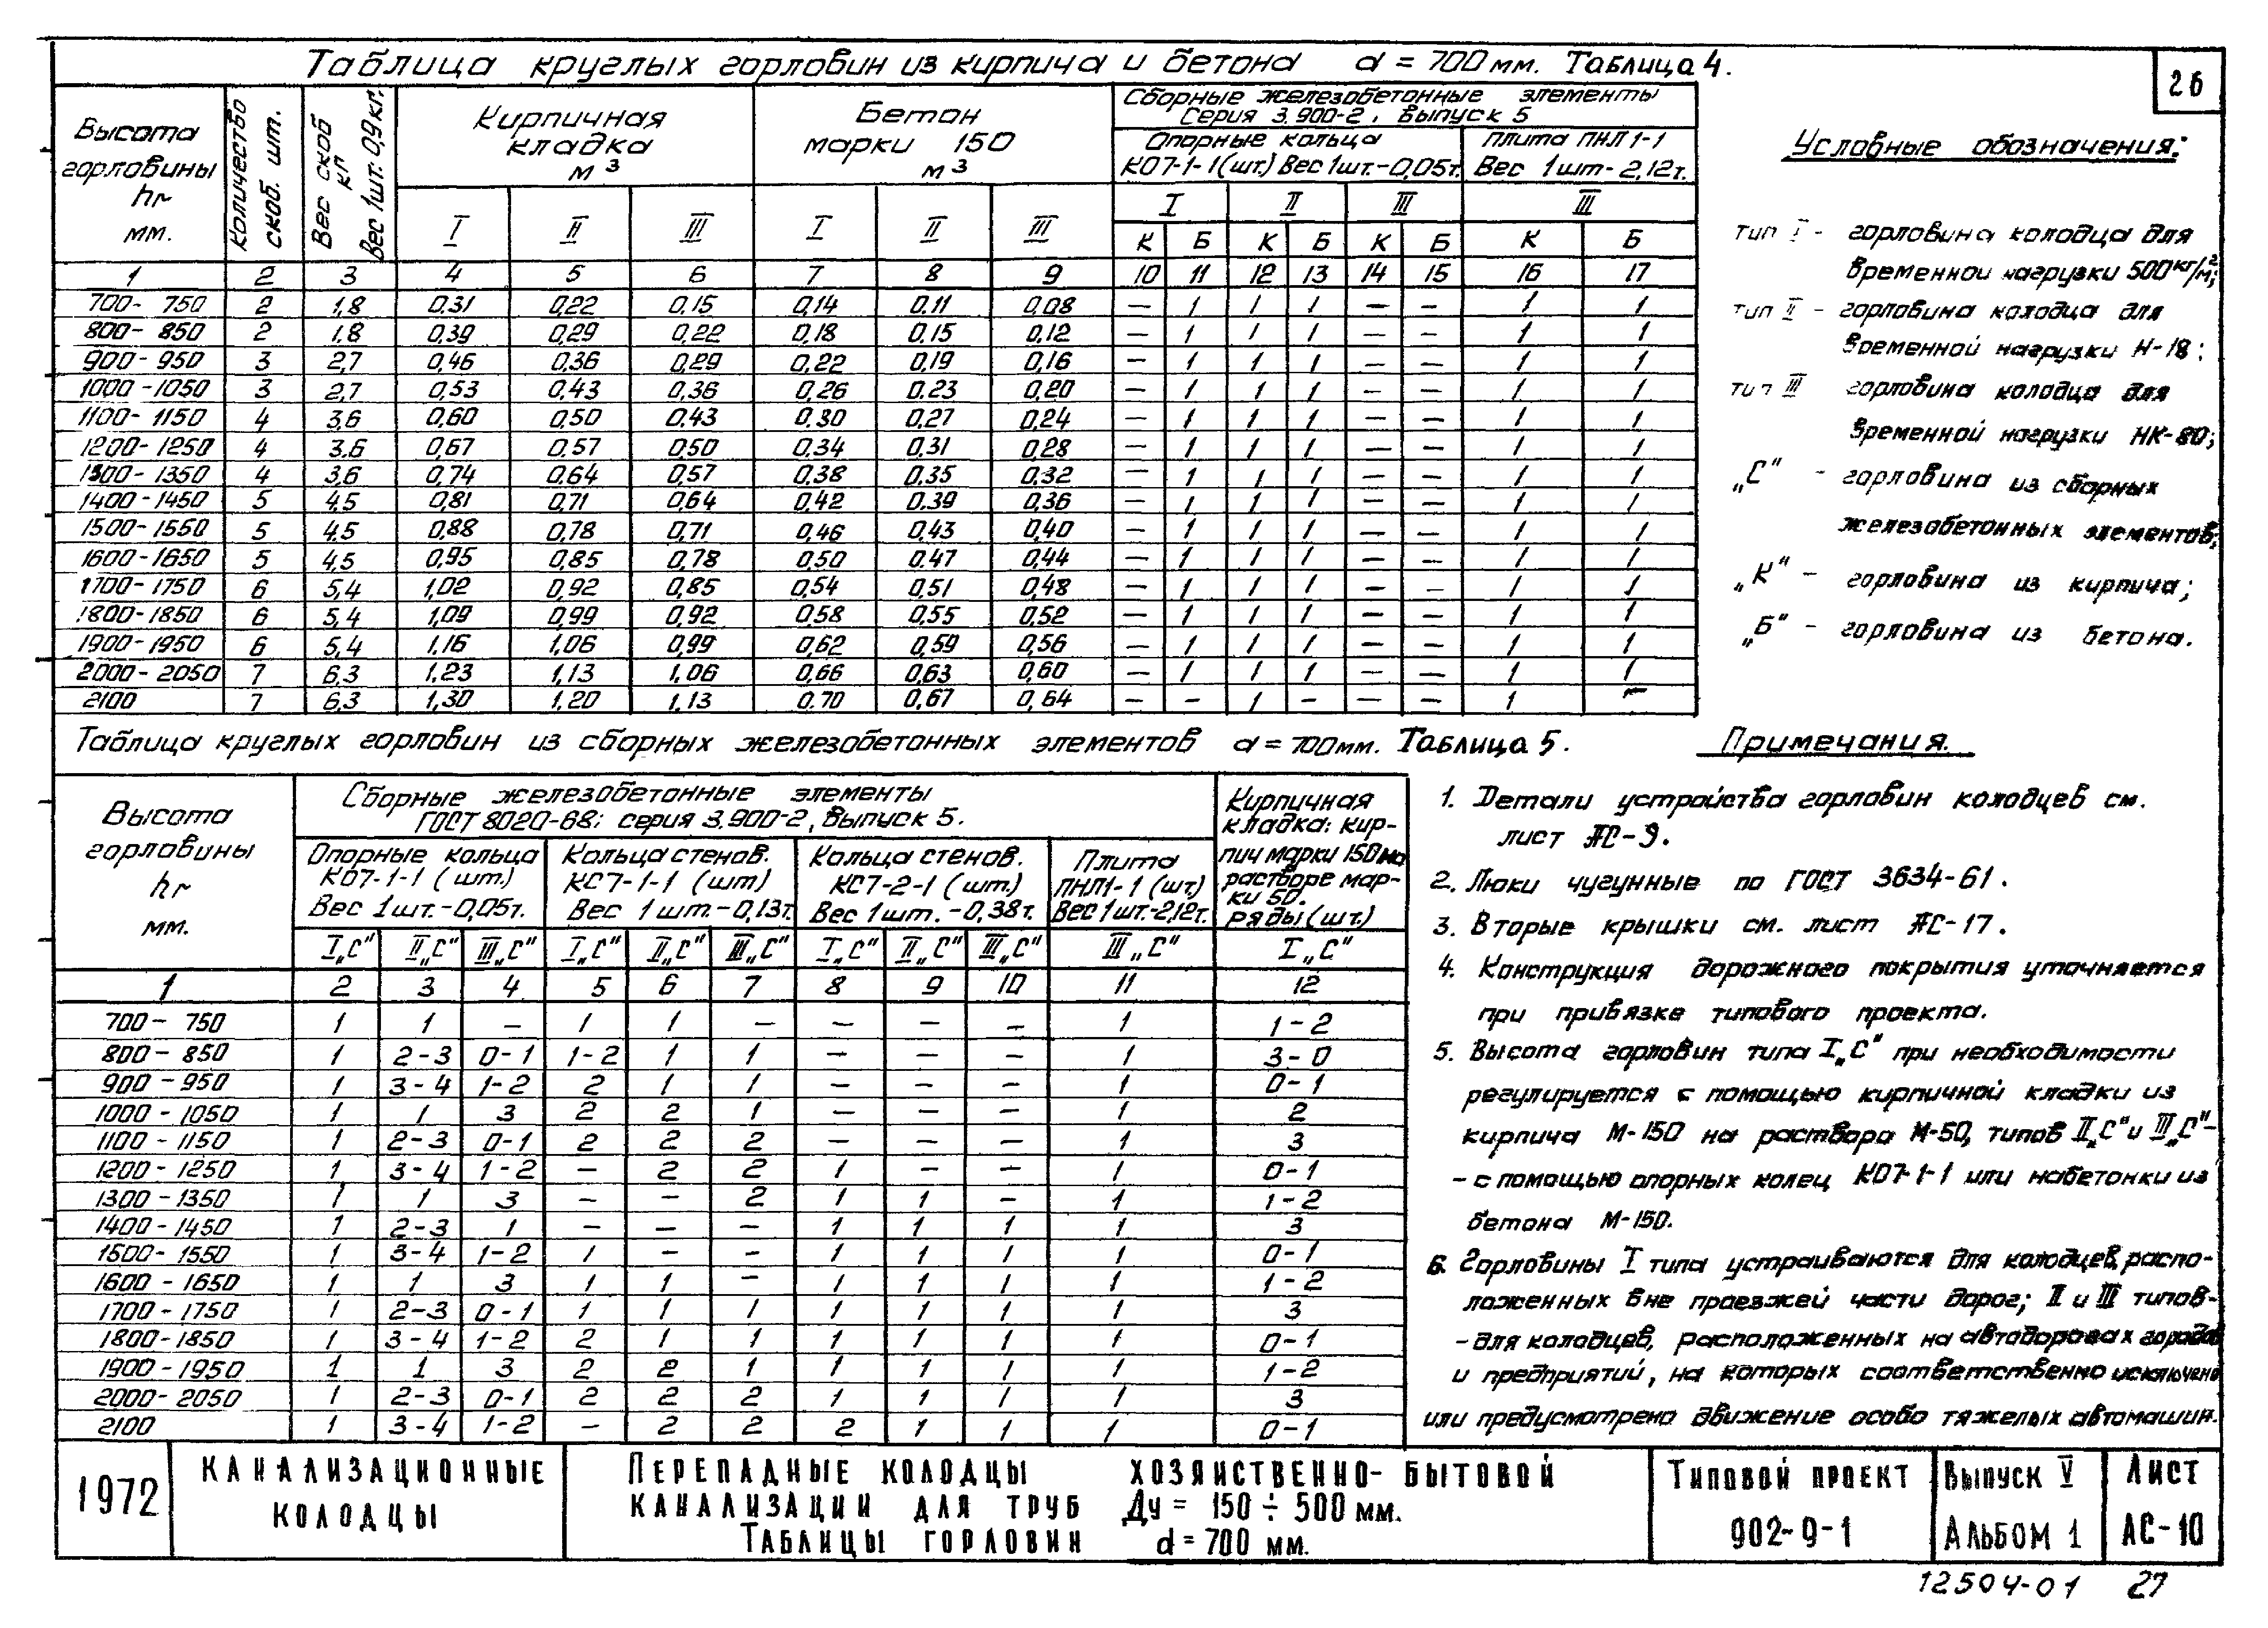 Таблица круглых горловин из кирпича и бетона d = 700 мм. Таблица 4.
26
Высота горловины hг мм.
Количество скоб. шт.
Вес скоб КП Вес 1шт. 0,9кг.
Кирпичная кладка м³
Бетон марки 150 м³
Сборные железобетонные элементы
Серия 3.900-2, Выпуск 5
Опорные кольца КО7-1-1 (шт.) Вес 1шт.-0,05т.
Плита ПНЛ 1-1 Вес 1шт-2,12т.
I II III I II III I II III III
К Б К Б К Б К Б
1 2 3 4 5 6 7 8 9 10 11 12 13 14 15 16 17
700- 750 2 1,8 0.31 0,22 0,15 0,14 0.11 0,08 — 1 1 1 — — 1 1
800- 850 2 1,8 0,39 0,29 0,22 0,18 0.15 0,12 — 1 1 1 — — 1 1
900-950 3 2,7 0,46 0,36 0,29 0,22 0,19 0,16 — 1 1 1 — — 1 1
1000-1050 3 2,7 0,53 0,43 0,36 0,26 0.23 0,20 — 1 1 1 — — 1 1
1100-1150 4 3,6 0,60 0,50 0.43 0.30 0,27 0,24 — 1 1 1 — — 1 1
1200-1250 4 3.6 0,67 0.57 0,50 0.34 0,31 0,28 — 1 1 1 — — 1 1
1300-1350 4 3,6 0,74 0,64 0,57 0,38 0.35 0,32 — 1 1 1 — — 1 1
1400-1450 5 4,5 0,81 0,71 0,64 0,42 0.39 0,36 — 1 1 1 — — 1 1
1500-1550 5 4,5 0,88 0,78 0,71 0,46 0,43 0,40 — 1 1 1 — — 1 1
1600-1650 5 4,5 0,95 0,85 0,78 0,50 0.47 0,44 — 1 1 1 — — 1 1
1700-1750 6 5,4 1,02 0,92 0,85 0,54 0,51 0,48 — 1 1 1 — — 1 1
1800-1850 6 5,4 1,09 0,99 0,92 0,58 0,55 0,52 — 1 1 1 — — 1 1
1900-1950 6 5,4 1,16 1,06 0,99 0,62 0,59 0,56 — 1 1 1 — — 1 1
2000-2050 7 6,3 1,23 1,13 1,06 0,66 0,63 0,60 — 1 1 1 — — 1 1
2100 7 6,3 1,30 1,20 1,13 0.70 0,67 0,64 — — 1 — — — 1 —
Условные обозначения:
тип I - горловина колодца для
временной нагрузки 500кг/м²;
тип II - горловина колодца для
временной нагрузки Н-18;
тип III горловина колодца для
временной нагрузки НК-80;
„С" - горловина из сборных
железобетонных элементов;
„К" - горловина из кирпича;
„Б" - горловина из бетона.
Таблица круглых горловин из сборных железобетонных элементов d = 700мм. Таблица 5.
Высота горловины hг мм.
Сборные железобетонные элементы
ГОСТ 8020-68; серия 3.900-2, Выпуск 5.
Опорные кольца КО7-1-1 (шт.) Вес 1шт.-0,05т.
Кольца стенов. КС7-1-1 (шт) Вес 1шт.-0,13т.
Кольца стенов. КС7-2-1 (шт.) Вес 1шт.-0,38т.
Плита ПНЛ1-1 (шт.) Вес 1шт.-2,12т.
Кирпичная кладка: кирпич марки 150 на растворе марки 50. ряды (шт.)
I„С" II„С" III„С" I„С" II„С" III„С" I„С" II„С" III„С" III„С" I„С"
1 2 3 4 5 6 7 8 9 10 11 12
700- 750 1 1 — 1 1 — — — — 1 1-2
800- 850 1 2-3 0-1 1-2 1 1 — — — 1 3-0
900-950 1 3-4 1-2 2 1 1 — — — 1 0-1
1000-1050 1 1 3 2 2 1 — — — 1 2
1100-1150 1 2-3 0-1 2 2 2 — — — 1 3
1200-1250 1 3-4 1-2 — 2 2 1 — — 1 0-1
1300-1350 1 1 3 — — 2 1 1 — 1 1-2
1400-1450 1 2-3 1 — — — 1 1 1 1 3
1500-1550 1 3-4 1-2 1 — — 1 1 1 1 0-1
1600-1650 1 1 3 1 1 — 1 1 1 1 1-2
1700-1750 1 2-3 0-1 1 1 1 1 1 1 1 3
1800-1850 1 3-4 1-2 2 1 1 1 1 1 1 0-1
1900-1950 1 1 3 2 2 1 1 1 1 1 1-2
2000-2050 1 2-3 0-1 2 2 2 1 1 1 1 3
2100 1 3-4 1-2 — 2 2 2 1 1 1 0-1
Примечания.
1. Детали устройства горловин колодцев см.
лист АС-9.
2. Люки чугунные по ГОСТ 3634-61.
3. Вторые крышки см. лист АС-17.
4. Конструкция дорожного покрытия уточняется
при привязке типового проекта.
5. Высота горловин типа I„С" при необходимости
регулируется с помощью кирпичной кладки из
кирпича М-150 на раствора М-50, типов II„С" и III„С"-
- с помощью опорных колец КО7-1-1 или набетонки из
бетона М-150.
6. Горловины I типа устраиваются для колодцев, распо-
ложенных вне проезжей части дорог; II и III типов-
- для колодцев, расположенных на автодорогах городов
и предприятий, на которых соответственно исключено
или предусмотрено движение особо тяжелых автомашин.
1972
Канализационные
колодцы
Перепадные колодцы хозяйственно-бытовой
канализации для труб Ду = 150÷500 мм.
Таблицы горловин d = 700 мм.
Типовой проект
902-9-1
Выпуск V
Альбом 1
Лист
АС-10
12504-01 27